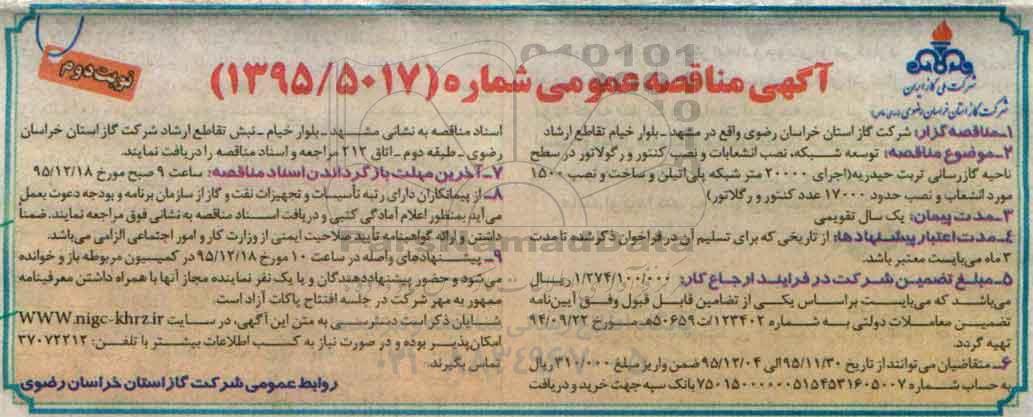 نوبت دوم
آگهی مناقصه عمومی شماره (۱۳۹۵/۵۰۱۷)
شرکت ملی گاز ایران
شرکت گاز استان خراسان رضوی (سهامی خاص)
۱ـ مناقصه گزار: شرکت گاز استان خراسان رضوی واقع در مشهد ـ بلوار خیام تقاطع ارشاد
۲ـ موضوع مناقصه: توسعه شبکه، نصب انشعابات و نصب کنتور و رگولاتور در سطح
ناحیه گازرسانی تربت حیدریه(اجرای ۲۰۰۰۰ متر شبکه پلی اتیلن و ساخت و نصب ۱۵۰۰
مورد انشعاب و نصب حدود ۱۷۰۰۰ عدد کنتور و رگلاتور)
۳ـ مدت پیمان: یک سال تقویمی
۴ـ مدت اعتبار پیشنهادها: از تاریخی که برای تسلیم آن در فراخوان ذکر شده تا مدت
۳ ماه می‌بایست معتبر باشد.
۵ـ مبلغ تضمین شرکت در فرایند ارجاع کار: ۱/۲۷۴/۱۰۰/۰۰۰ ریال
می‌باشد که می‌بایست بر اساس یکی از تضامین قابل قبول وفق آیین‌نامه
تضمین معاملات دولتی به شماره ۱۲۳۴۰۲/ت۵۰۶۵۹هـ مورخ ۹۴/۰۹/۲۲
تهیه گردد.
۶ـ متقاضیان می‌توانند از تاریخ ۹۵/۱۱/۳۰ الی ۹۵/۱۲/۰۴ ضمن واریز مبلغ ۳۱۰/۰۰۰ ریال
به حساب شماره بانک سپه جهت خرید و دریافت
اسناد مناقصه به نشانی مشهد ـ بلوار خیام ـ نبش تقاطع ارشاد شرکت گاز استان خراسان
رضوی ـ طبقه دوم ـ اتاق ۲۱۲ مراجعه و اسناد مناقصه را دریافت نمایند.
۷ـ آخرین مهلت بازگرداندن اسناد مناقصه: ساعت ۹ صبح مورخ ۹۵/۱۲/۱۸
۸ـ از پیمانکاران دارای رتبه تأسیسات و تجهیزات نفت و گاز از سازمان برنامه و بودجه دعوت بعمل
می‌آید بمنظور اعلام آمادگی کتبی و دریافت اسناد مناقصه به نشانی فوق مراجعه نمایند. ضمناً
داشتن و ارائه گواهینامه تأیید صلاحیت ایمنی از وزارت کار و امور اجتماعی الزامی می‌باشد.
۹ـ پیشنهادهای واصله در ساعت ۱۰ مورخ ۹۵/۱۲/۱۸ در کمیسیون مربوطه باز و خوانده
می‌شود و حضور پیشنهاددهندگان و یا یک نفر نماینده مجاز آنها با همراه داشتن معرفینامه
ممهور به مهر شرکت در جلسه افتتاح پاکات آزاد است.
شایان ذکر است دسترسی به متن این آگهی، در سایت WWW.nigc-khrz.ir
امکان‌پذیر بوده و در صورت نیاز به کسب اطلاعات بیشتر با تلفن: ۳۷۰۷۲۲۱۲
تماس بگیرند.
روابط عمومی شرکت گاز استان خراسان رضوی
ParsNamadData